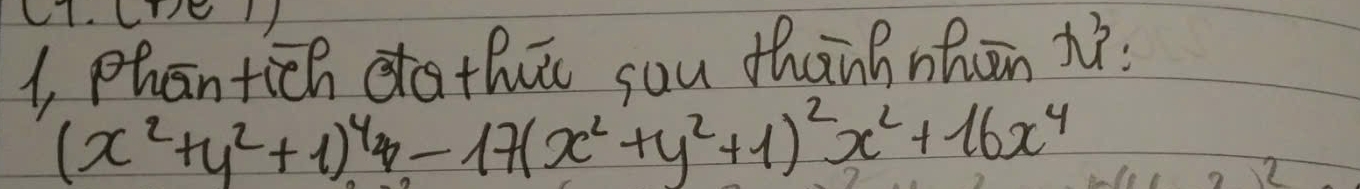 1, Phân tích đa thức sau thành nhân tử:
(x²+y²+1)⁴ - 17(x²+y²+1)²x²+16x⁴